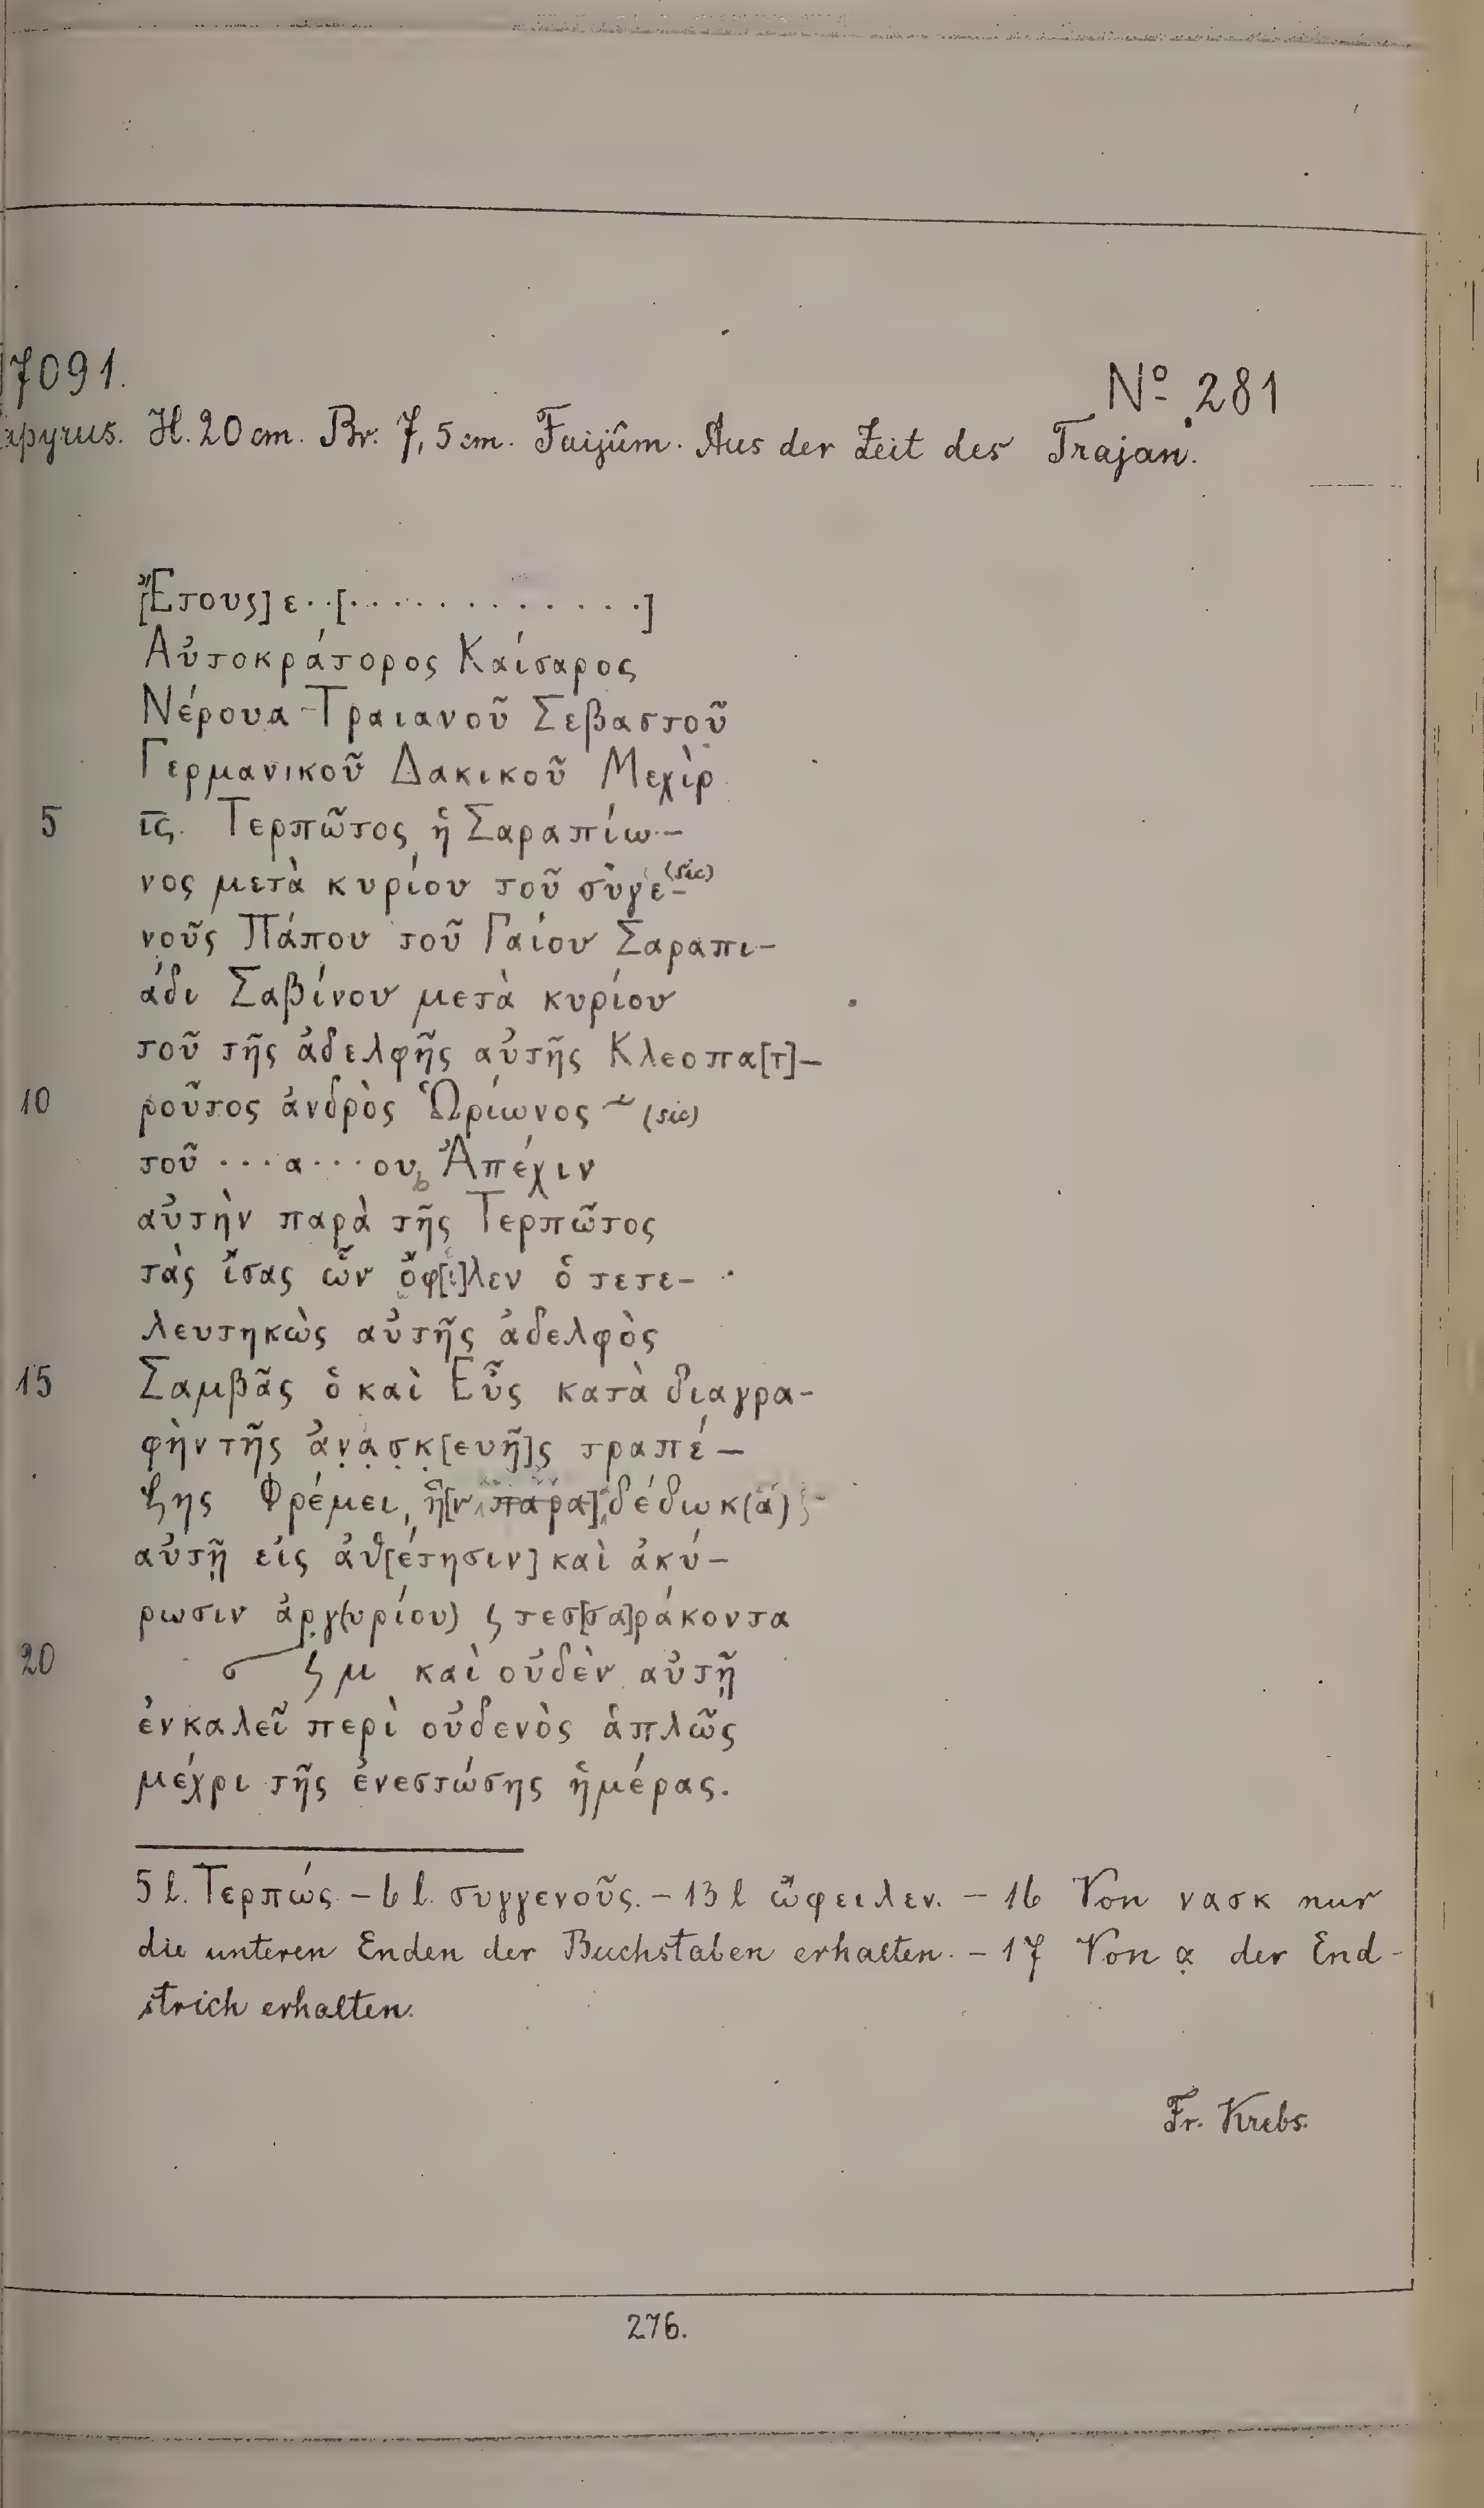 7091.
Nº 281
apyrus. H. 20 cm. Br. 7,5 cm. Faijûm. Aus der Zeit des Trajan.
[Ἔτους] ε..[.............]
Αὐτοκράτορος Καίσαρος
Νέρουα Τραιανοῦ Σεβαστοῦ
Γερμανικοῦ Δακικοῦ Μεχὶρ
5 ι̅ς̅. Τερπῶτος ἡ Σαραπίω-
νος μετὰ κυρίου τοῦ συγε- (sic)
νοῦς Πάπου τοῦ Γαίου Σαραπι-
άδι Σαβίνου μετὰ κυρίου
τοῦ τῆς ἀδελφῆς αὐτῆς Κλεοπα[τ]-
10 ροῦτος ἀνδρὸς Ὡρίωνος ~ (sic)
τοῦ ...α...ου Ἀπέχιν
αὐτὴν παρὰ τῆς Τερπῶτος
τὰς ἴσας ὧν ὄφ[ι]λεν ὁ τετε-
λευτηκὼς αὐτῆς ἀδελφὸς
15 Σαμβᾶς ὁ καὶ Εὖς κατὰ διαγρα-
φὴν τῆς ἀν̣α̣σ̣κ̣[ευῆ]ς τραπέ-
ζης Φρέμει, ἣ[ν παρα]δέδωκ(α)
αὐτῇ εἰς ἀθ[έτησιν] καὶ ἀκύ-
ρωσιν ἀργ(υρίου) ʢ τεσ[σα]ράκοντα
20 σ ʢ μ καὶ οὐδὲν αὐτῇ
ἐνκαλεῖ περὶ οὐδενὸς ἁπλῶς
μέχρι τῆς ἐνεστώσης ἡμέρας.
5 l. Τερπώς. - 6 l. συγγενοῦς. - 13 l ὤφειλεν. - 16 Von νασκ nur
die unteren Enden der Buchstaben erhalten. - 17 Von α̣ der End-
strich erhalten.
Fr. Krebs.
276.